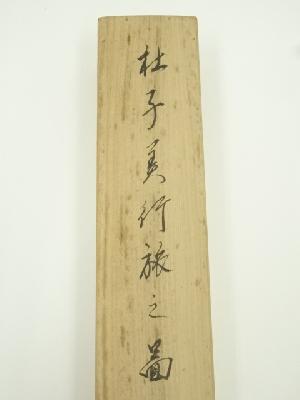 杜子美行旅之圖